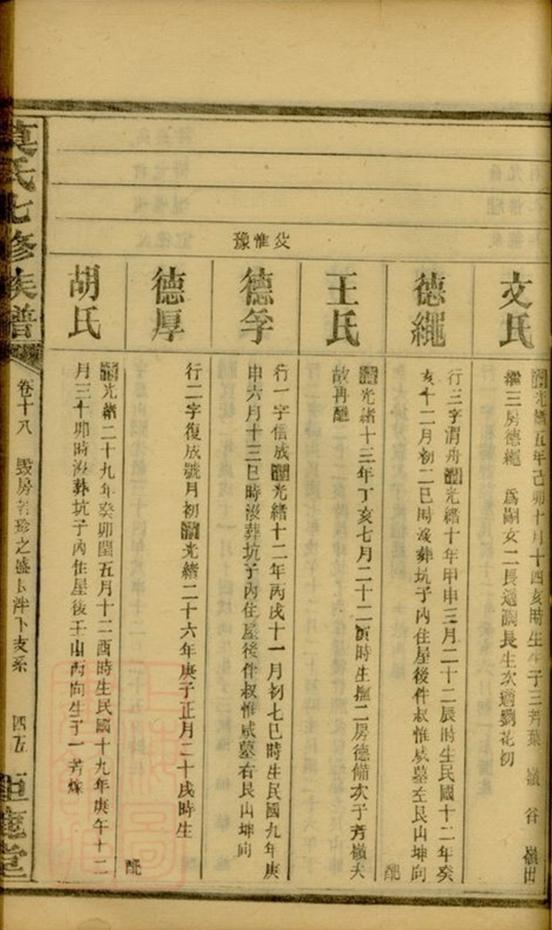 文氏
清光緒五年己卯十月十四亥時生生子三芳葉 嶺 谷 嶺出
繼三房德繩 爲嗣女二長適 長生次適劉花初
德繩
行三字渭舟清光緒十年甲申三月二十二辰時生民國十二年癸
亥十二月初二巳時歿葬坑子內住屋後伴叔惟咸墓左艮山坤向
配
王氏
清光緒十三年丁亥七月二十二寅時生撫二房德備次子芳嶺夫
故再醮
炎惟豫
德孚
行一字信成清光緒十二年丙戌十一月初七巳時生民國九年庚
申六月十三巳時歿葬坑子內住屋後伴叔惟咸墓右艮山坤向
德厚
行二字復成號月初清光緒二十六年庚子正月二十戌時生
配
胡氏
清光緒二十九年癸卯閏五月十二酉時生民國十九年庚午十二
月三十卯時歿葬坑子內住屋後壬山丙向生子一芳
莫氏七修族譜
卷十八
房 珍之 支系
四五
鉅鹿堂